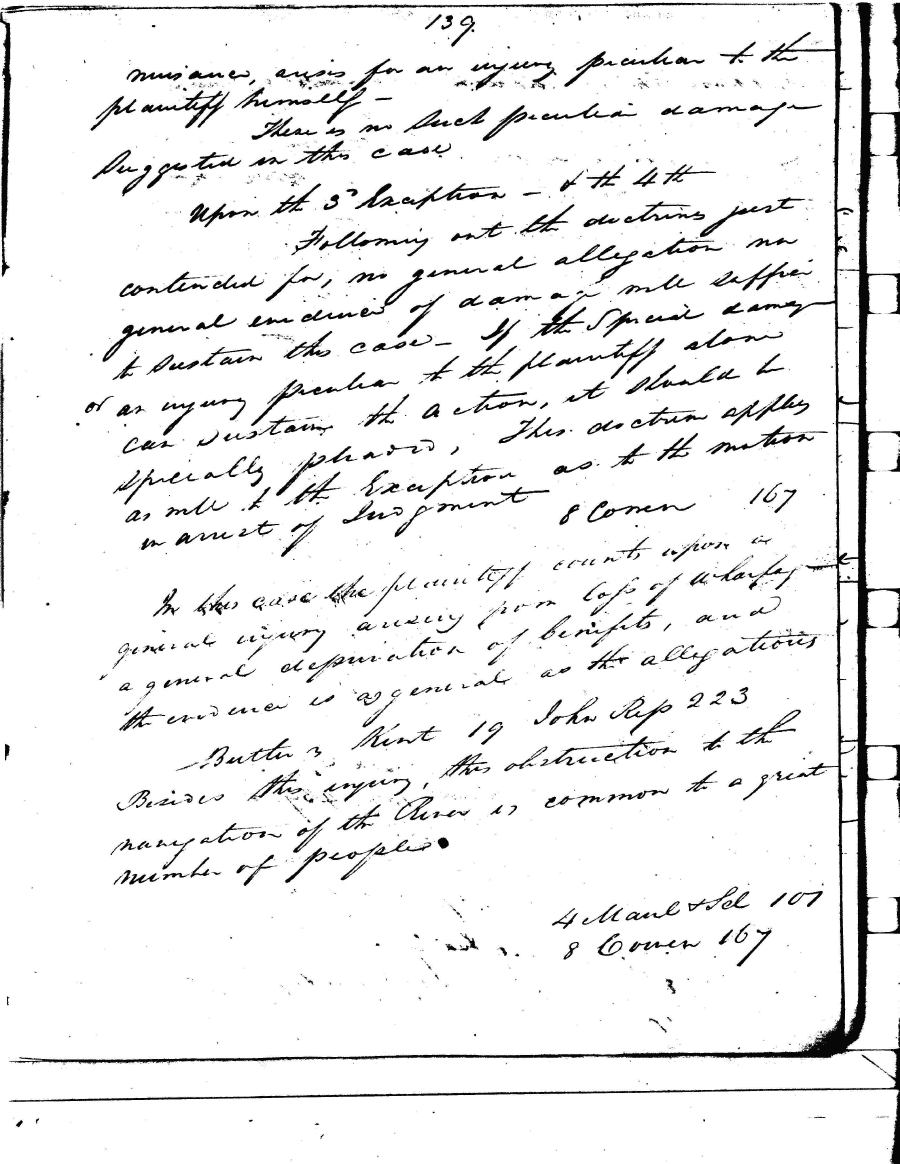 139.
nuisance, arises for an injury peculiar to the
plaintiff himself –
There is no such peculiar damage
Suggested in this case
Upon th 3d Exception – & th 4th
Following out th doctrines just
contended for, no general allegation nor
general evidence of damage will suffice
to Sustain this case – If the Special damage
or an injury peculiar to th plaintiff alone
can sustain th action, it should be
specially pleaded, This doctrine applies
as well to th Exception as to th motion
in arrest of Judgment
8 Cowen 167
In this case the plaintiff counts upon a
general injury arising from loss of wharfage
a general deprivation of benefits, and
th evidence is as general as the allegations
– Butler v Kent 19 John Rep 223
Besides this injury, this obstruction to th
navigation of th River is common to a great
number of people
4 Maul & Sel 101
8 Cowen 167